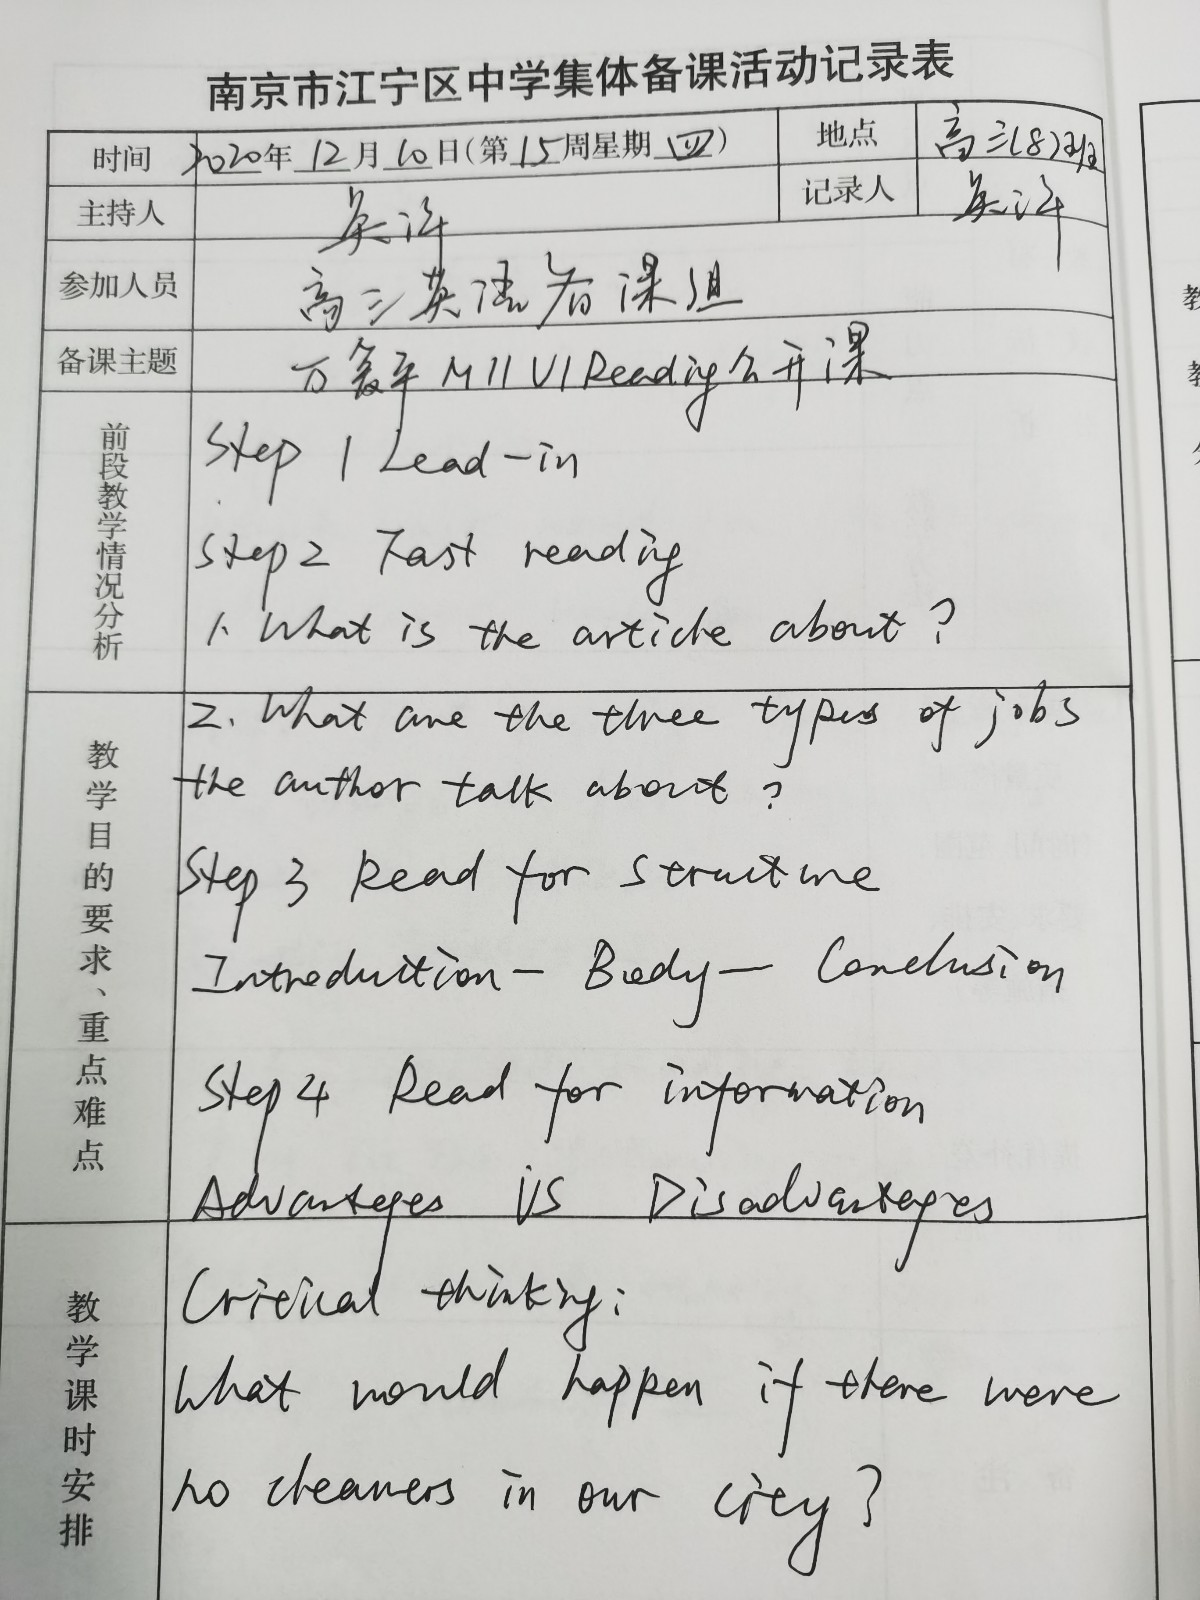 南京市江宁区中学集体备课活动记录表
时间 2020年12月10日(第15周星期四) 地点 高三(8)班
主持人 记录人
参加人员 高三英语备课组
备课主题 M11 U1 Reading公开课
前段教学情况分析
Step 1 Lead-in
Step 2 Fast reading
1. What is the article about?
教学目的要求、重点难点
2. What are the three types of jobs
the author talk about?
Step 3 Read for structure
Introduction — Body — Conclusion
Step 4 Read for information
Advantages VS Disadvantages
教学课时安排
Critical thinking:
What would happen if there were
no cleaners in our city?